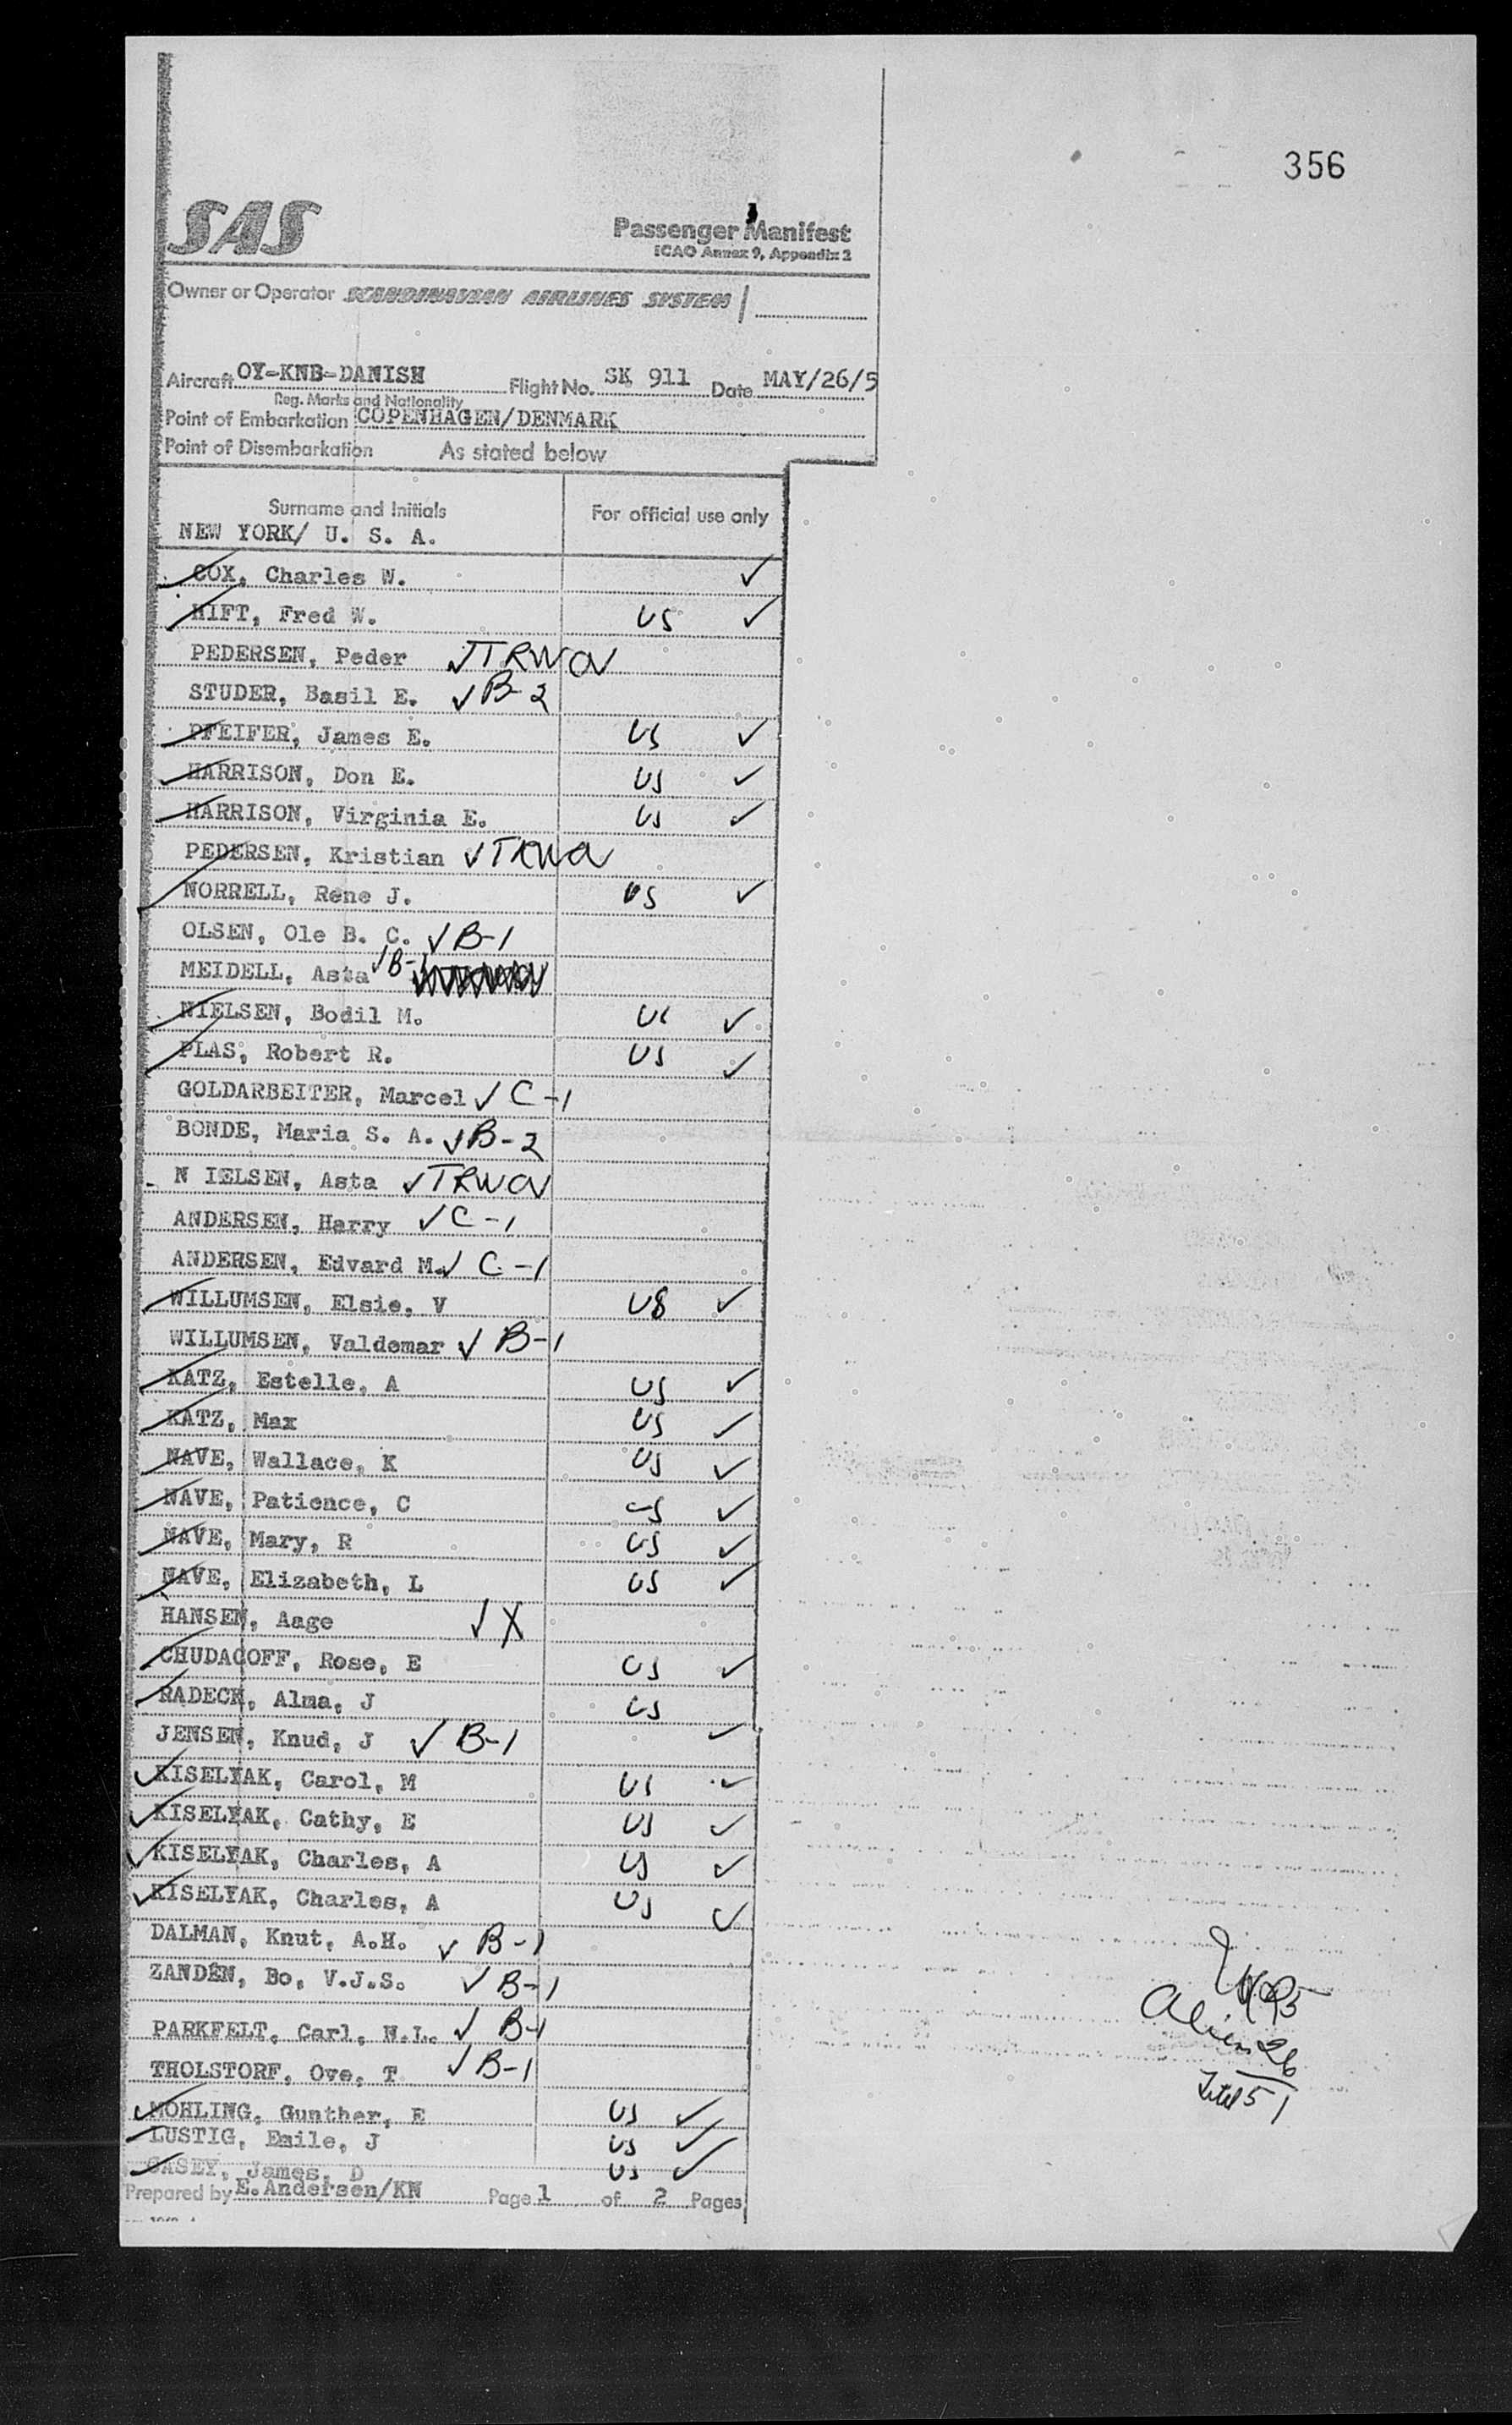 356
SAS
Passenger Manifest
ICAO Annex 9, Appendix 2
Owner or Operator SCANDINAVIAN AIRLINES SYSTEM
Aircraft OY-KNB-DANISH Flight No. SK 911 Date MAY/26/5
Reg. Marks and Nationality
Point of Embarkation COPENHAGEN/DENMARK
Point of Disembarkation As stated below
Surname and Initials For official use only
NEW YORK/ U. S. A.
COX, Charles W. ✓
HIFT, Fred W. US ✓
PEDERSEN, Peder ✓ TRWOV
STUDER, Basil E. ✓ B-2
PFEIFER, James E. US ✓
HARRISON, Don E. US ✓
HARRISON, Virginia E. US ✓
PEDERSEN, Kristian ✓ TRWOV
NORRELL, Rene J. US ✓
OLSEN, Ole B. C. ✓ B-1
MEIDELL, Asta ✓ B-1
NIELSEN, Bodil M. US ✓
PLAS, Robert R. US ✓
GOLDARBEITER, Marcel ✓ C-1
BONDE, Maria S. A. ✓ B-2
N IELSEN, Asta ✓ TRWOV
ANDERSEN, Harry ✓ C-1
ANDERSEN, Edvard M. ✓ C-1
WILLUMSEN, Elsie, V US ✓
WILLUMSEN, Valdemar ✓ B-1
KATZ, Estelle, A US ✓
KATZ, Max US ✓
NAVE, Wallace, K US ✓
NAVE, Patience, C US ✓
NAVE, Mary, R US ✓
NAVE, Elizabeth, L US ✓
HANSEN, Aage ✓ X
CHUDACOFF, Rose, E US ✓
RADECK, Alma, J US ✓
JENSEN, Knud, J ✓ B-1
KISELYAK, Carol, M US ✓
KISELYAK, Cathy, E US ✓
KISELYAK, Charles, A US ✓
KISELYAK, Charles, A US ✓
DALMAN, Knut, A.H. ✓ B-1
ZANDÉN, Bo, V.J.S. ✓ B-1
PARKFELT, Carl, N.L. ✓ B-1
THOLSTORF, Ove, T ✓ B-1
MOHLING, Gunther, E US ✓
LUSTIG, Emile, J US ✓
CASEY, James, D US ✓
Prepared by E. Andersen/KN Page 1 of 2 Pages
Alien 26
Total 51